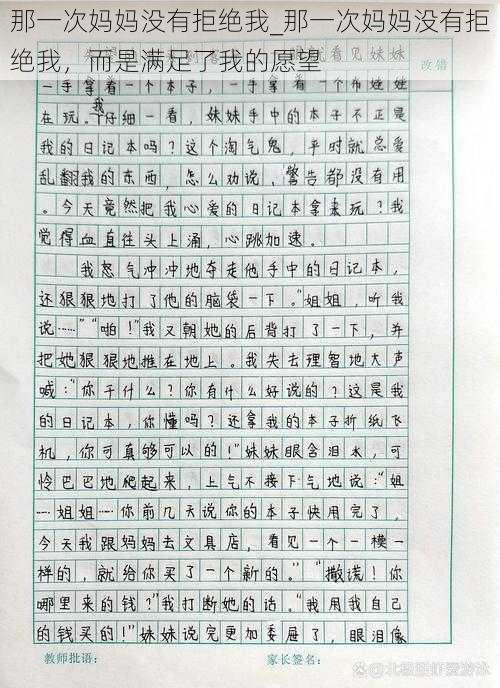 那一次妈妈没有拒绝我_那一次妈妈没有拒
绝我，而是满足了我的愿望
看见妹妹
改错
一手拿着一个本子，一手拿着一个布娃娃
在玩。我仔细一看，妹妹手中的本子不正是
我的日记本吗？这个淘气鬼，平时就总爱
乱翻我的东西，怎么劝说，警告都没有用
。今天竟然把我心爱的日记本拿来玩？我
觉得血直往头上涌，心跳加速。
我怒气冲冲地夺走他手中的日记本，
还狠狠地打了他的脑袋一下。“姐姐，听我
说……”“啪！”我又朝她的后背打了一下，并
把她狠狠地推在地上。我失去理智地大声
喊：“你干什么？你有什么好说的？这是我
的日记本，你懂吗？还拿我的本子折纸飞
机，你可真够可以的！”妹妹眼含泪水，可
怜巴巴地爬起来，上气不接下气地说：“姐
……姐姐……你前几天说你的本子快用完了，
今天我跟妈妈去文具店，看见一个一模一
样的，就给你买了一个新的。”“撒谎！你
哪里来的钱？”我打断她的话。“我用我自己
的钱买的！”妹妹说完更加委屈了，眼泪像
教师批语： 家长签名：